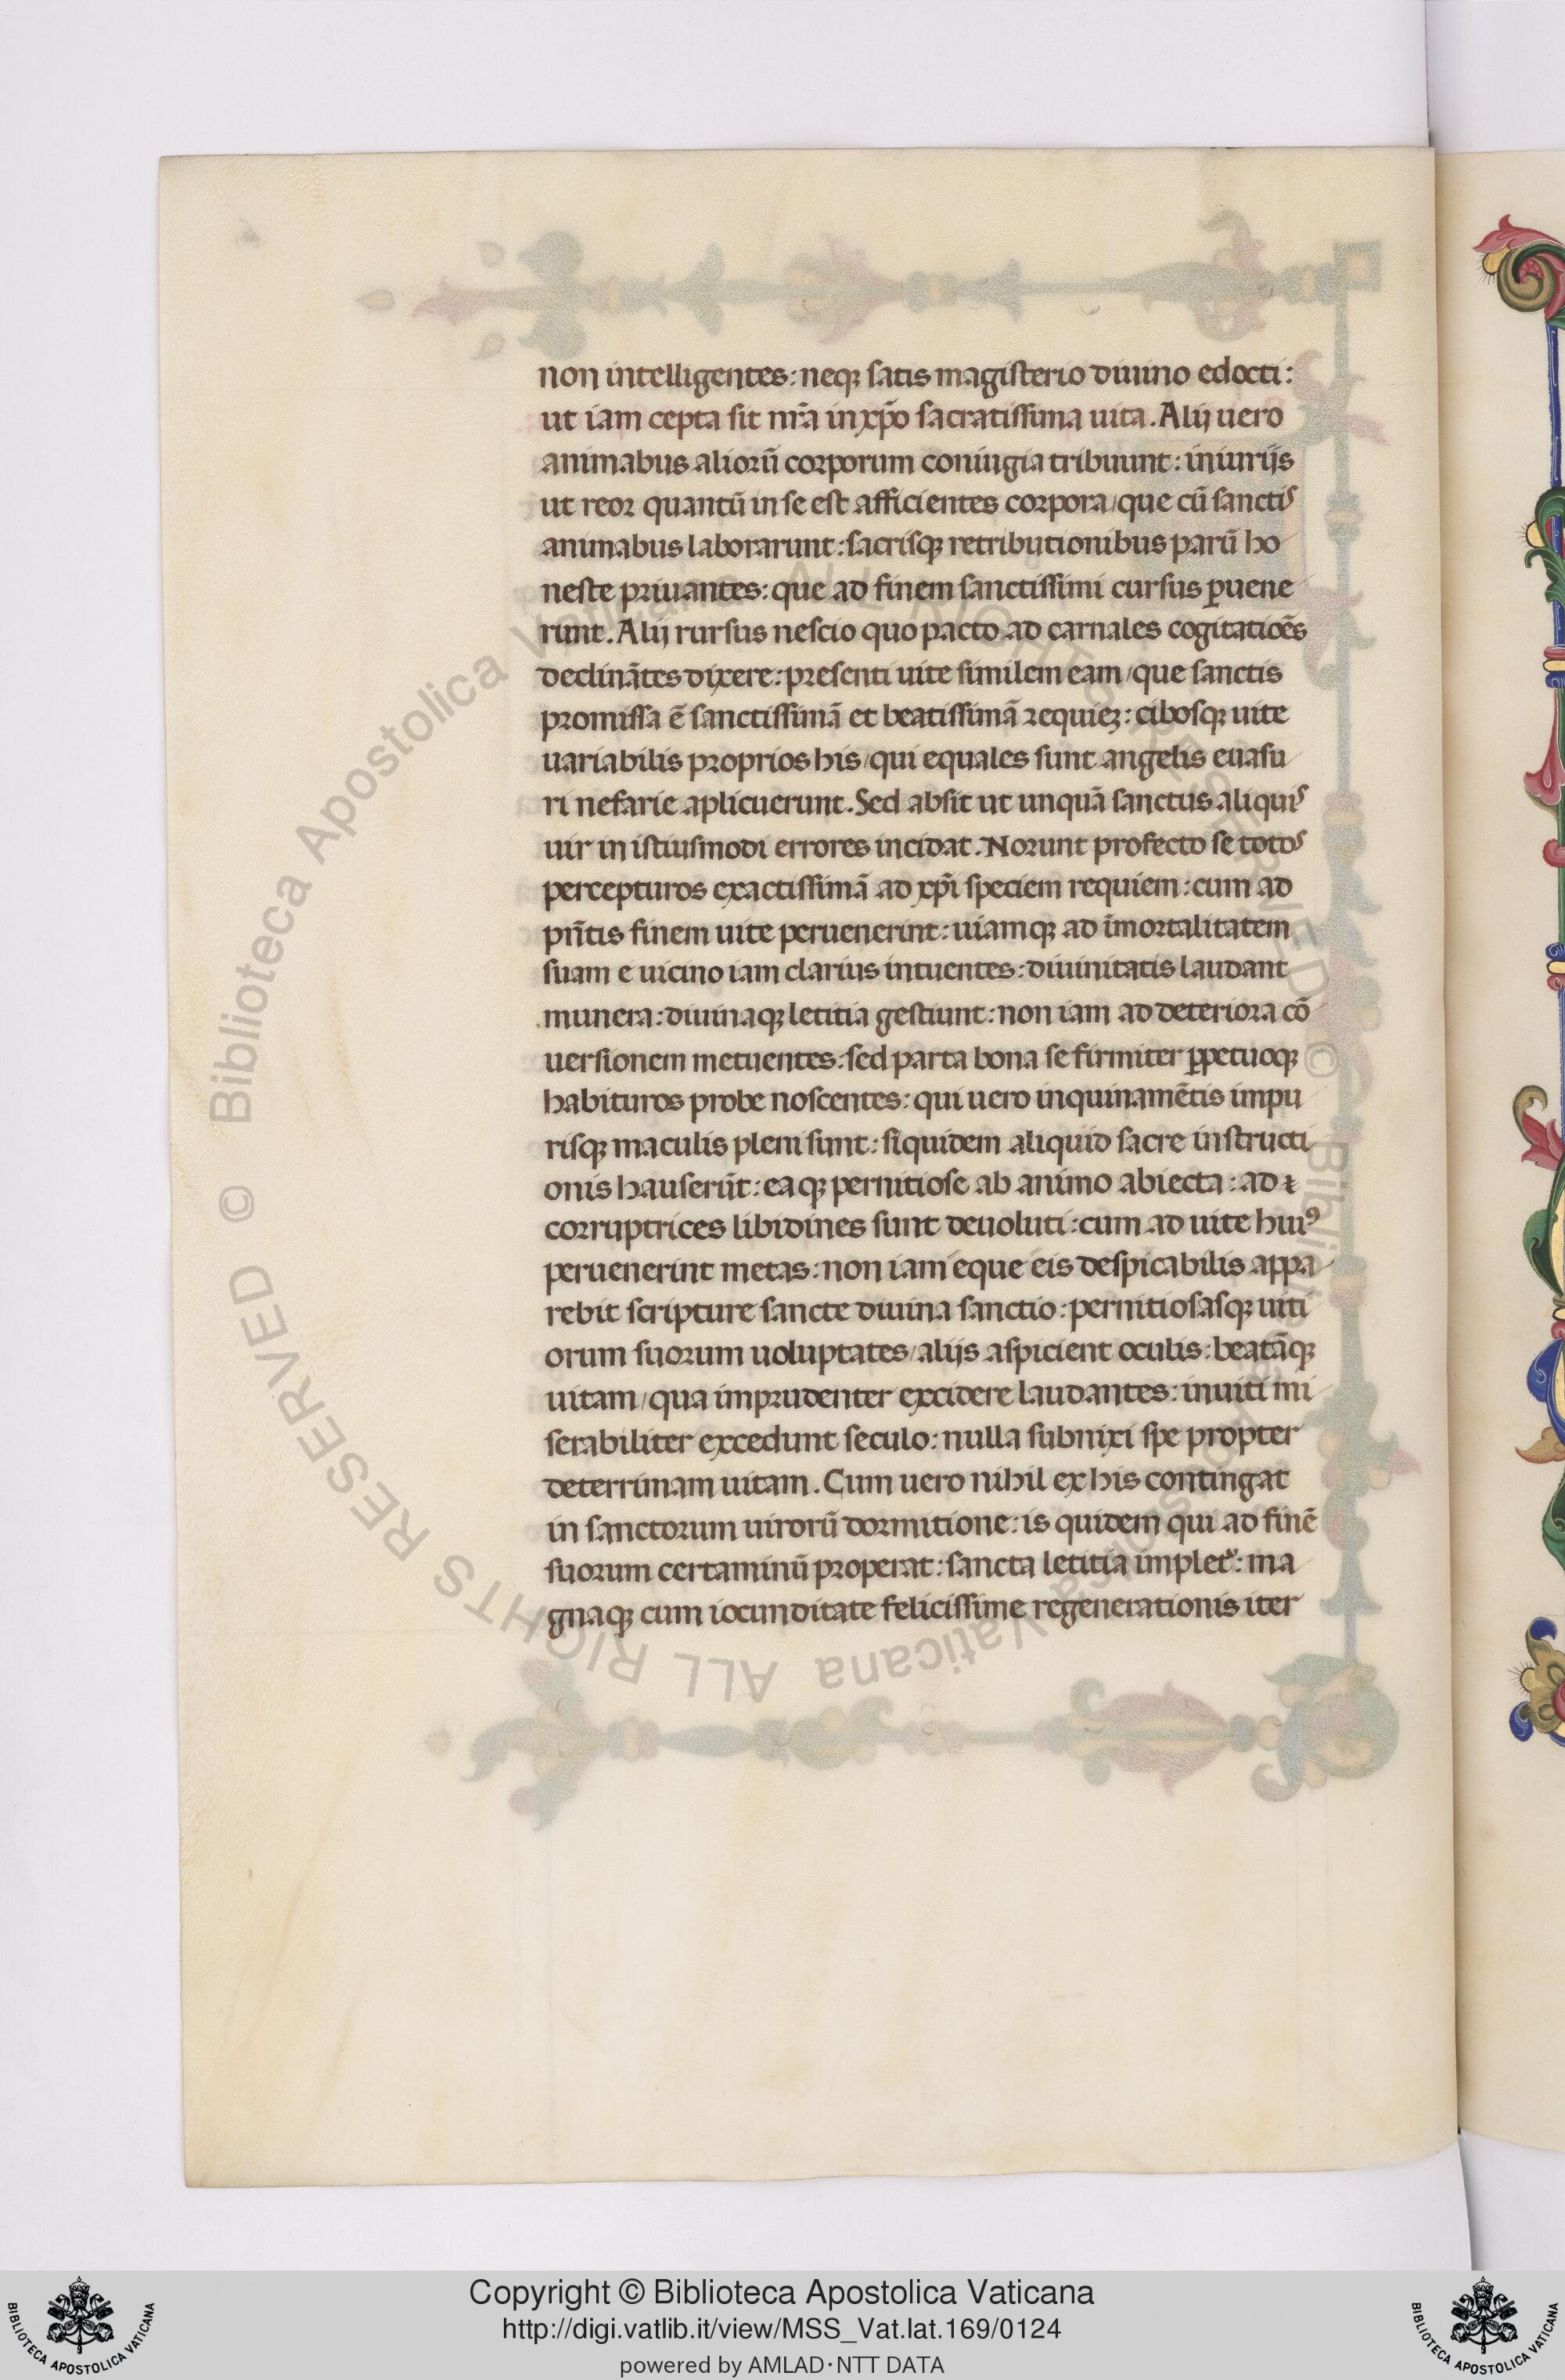 non intelligentes: neqꝫ satis magisterio diuino edocti:
ut iam cepta sit nr̄a in xp̄o sacratissima uita. Alij uero
animabus aliorū corporum coniugia tribuunt: iniurijs
ut reor quantū in se est afficientes corpora/que cū sanctis
animabus laborarunt: sacrisqꝫ retributionibus parū ho
neste priuantes: que ad finem sanctissimi cursus ꝑuene
runt. Alij rursus nescio quo pacto ad carnales cogitatioēs
declinātes dixere: presenti uite similem eam/que sanctis
promissa ē sanctissimā et beatissimā requieꝫ: cibosqꝫ uite
uariabilis proprios his/qui equales sunt angelis euasu
ri nefarie aplicuerunt. Sed absit ut unquā sanctus aliquis
uir in istiusmodi errores incidat. Norunt profecto se totos
percepturos exactissimā ad xp̄i speciem requiem: cum ad
pn̄tis finem uite peruenerint: uiamqꝫ ad īmortalitatem
suam e uicino iam clarius intuentes: diuinitatis laudant
munera: diuinaqꝫ letitia gestiunt: non iam ad deteriora cō
uersionem metuentes: sed parta bona se firmiter ꝑpetuoqꝫ
habituros probe noscentes: qui uero inquinamētis impu
risqꝫ maculis pleni sunt: siquidem aliquid sacre instructi
onis hauserūt: eaqꝫ pernitiose ab animo abiecta: ad
corruptrices libidines sunt deuoluti: cum ad uite huiꝰ
peruenerint metas: non iam eque eis despicabilis appa
rebit scripture sancte diuina sanctio: pernitiosasqꝫ uiti
orum suorum uoluptates/alijs aspicient oculis: beatāqꝫ
uitam/qua imprudenter excidere laudantes: inuiti mi
serabiliter excedunt seculo: nulla subnixi spe propter
deterrimam uitam. Cum uero nihil ex his contingat
in sanctorum uirorū dormitione: is quidem qui ad finē
suorum certaminū properat: sancta letitia implet᷑: ma
gnaqꝫ cum iocunditate felicissime regenerationis iter
© Biblioteca Apostolica Vaticana ALL RIGHTS RESERVED
© Biblioteca Apostolica Vaticana ALL RIGHTS RESERVED
Copyright © Biblioteca Apostolica Vaticana
http://digi.vatlib.it/view/MSS_Vat.lat.169/0124
powered by AMLAD·NTT DATA
BIBLIOTECA APOSTOLICA VATICANA
BIBLIOTECA APOSTOLICA VATICANA